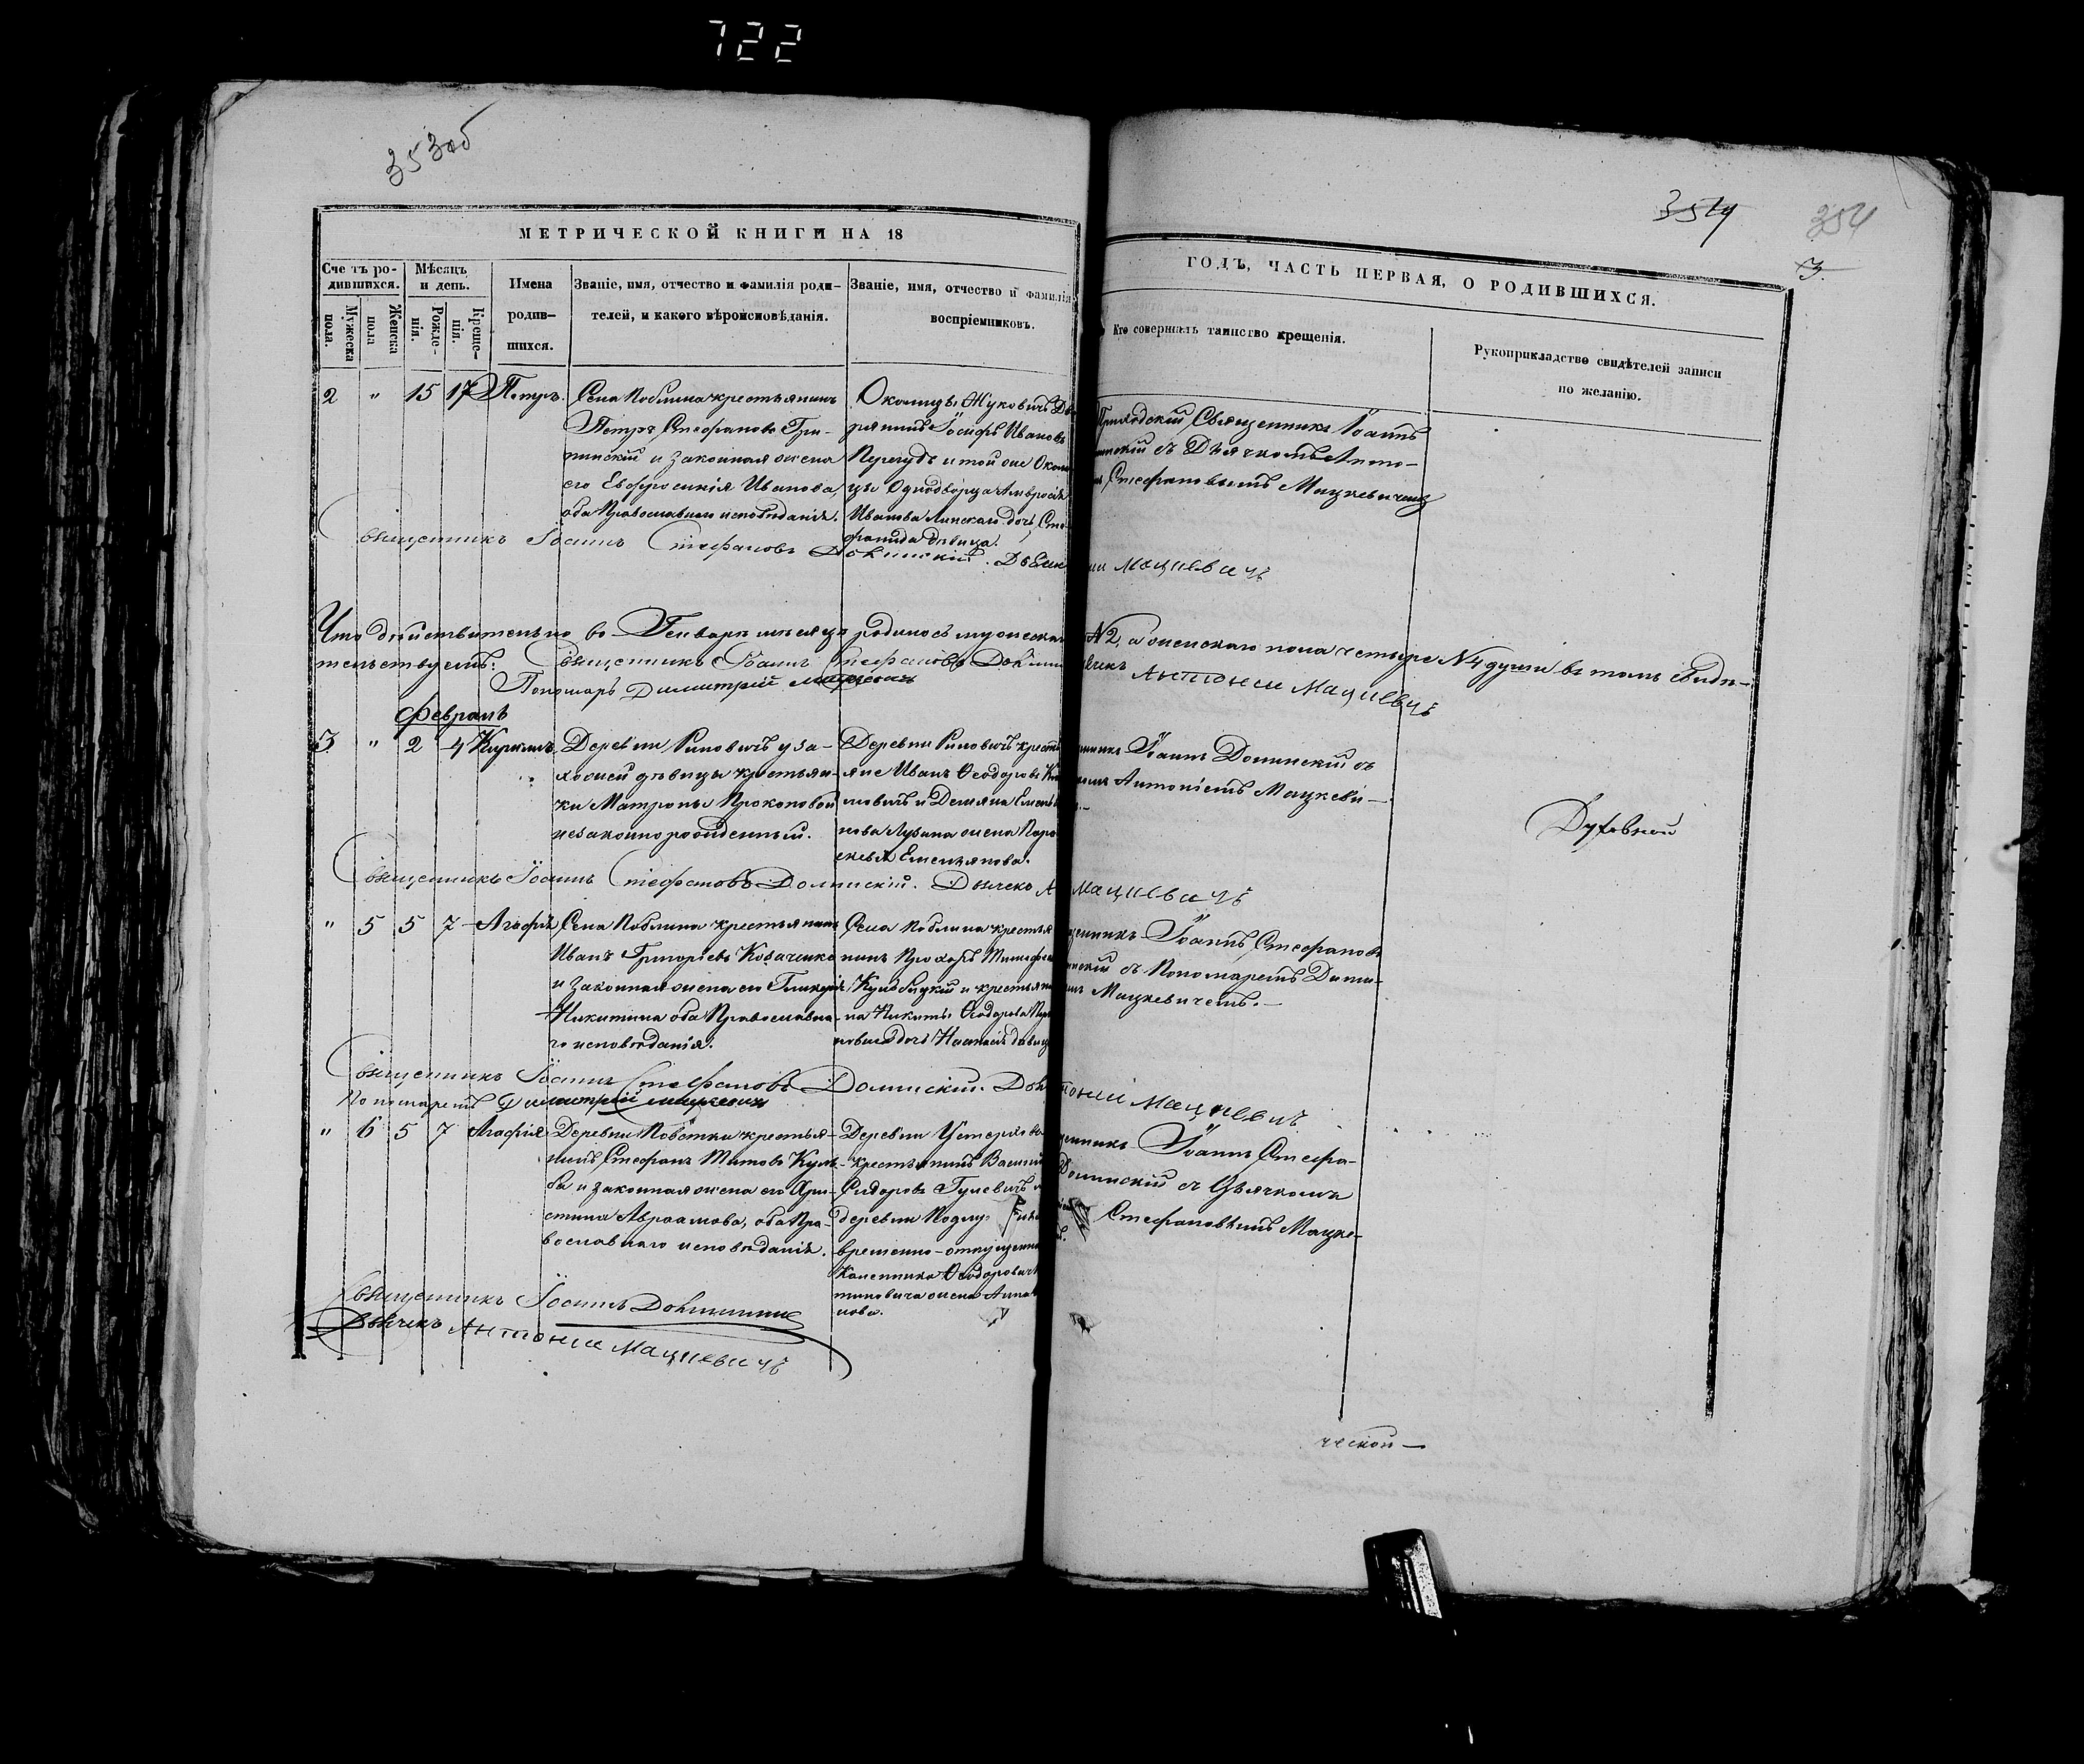 722
353 об
354
354
3.
МЕТРИЧЕСКОЙ КНИГИ НА 18
ГОДЪ, ЧАСТЬ ПЕРВАЯ, О РОДИВШИХСЯ.
Сче тъ ро-
дившихся.
Мужеска
пола.
Женска
пола
Мѣсяцъ
и день.
Рожде-
нія.
Креще-
нія.
Имена
родив-
шихся.
Званіе, имя, отчество и фамилія роди-
телей, и какого вѣроисповѣданія.
Званіе, имя, отчество и фамилія
воспріемниковъ.
Кто совершалъ таинство крещенія.
Рукоприкладство свидѣтелей записи
по желанію.
2 " 15 17 Петръ.
Села Поблина крестьянинъ
Петръ Стефановъ Гри-
нинскій и законная жена
его Евфросинія Иванова,
оба Православнаго исповѣданія.
Околицы Жуковичъ Дво
рянинъ Іосифъ Ивановъ
Перегудъ и той же Околи
цы Однодворца Амвросія
Иванова Линскаго дочь Сте-
фанида дѣвица.
Приходскій Священникъ Іоаннъ
съ Дьячкомъ Анто-
Стефановымъ Мацкевичемъ
Священникъ Іоаннъ Стефановъ Долинскій. Дьячекъ
Мацкевичъ
Что дѣйствительно въ Генварѣ мѣсяцѣ родилось мужеска N2, а женскаго пола четыре N4 души въ томъ свидѣ-
тельствуемъ: Священникъ Іоаннъ Стефановъ Долин
Антоній Мацкевичъ
Пономарь Димитрій Мацкевичъ
Февраль
3 " 2 4 Кириллъ.
Деревни Риповичъ у за-
хожей дѣвицы крестьян-
ки Матроны Прокоповой
незаконнорожденный.
Деревни Риповичъ крестья
яне Иванъ Ѳеодоровъ
мовичъ и Демяна Емель
нова Лузина жена Пара
скевія Емельянова.
Іоаннъ Долинскій съ
Антоніемъ Мацкеви-
Духовной
Священникъ Іоаннъ Стефановъ Долинскій. Дьячекъ А Мацкевичъ
" 5 5 7 Агафія
Села Поблина крестьянинъ
Иванъ Григорьевъ Козаченко
и законная жена его Гликерія
Никитина оба Православна-
го исповѣданія.
Села Поблина крестья
нинъ Прохоръ Тимофеев
и крестьяни
на Никиты Ѳеодорова
дочь дѣвица
Іоаннъ Стефановъ
съ Пономаремъ Дими-
Мацкевичемъ.
Священникъ Іоаннъ Стефановъ Долинскій. Дья
Антоній Мацкевичъ
Пономарь Димитрій Мацкевичъ
" 6 5 7 Агафія
Деревни Повѣтки крестья-
нинъ Стефанъ Титовъ Куль-
ба и законная жена его Хри-
стина Авраамова, оба Пра-
вославнаго исповѣданія.
Деревни
крестьянинъ Василій
Сидоровъ Гулевичъ и
деревни
временно-отпущенна
Ѳеодорович
тиновича жена Анна
нова.
Іоаннъ Стефа-
Долинскій съ Дьячкомъ
Стефановымъ Мацке-
Священникъ Іоаннъ Долинскій
Дьячекъ Антоній Мацкевичъ
ческой